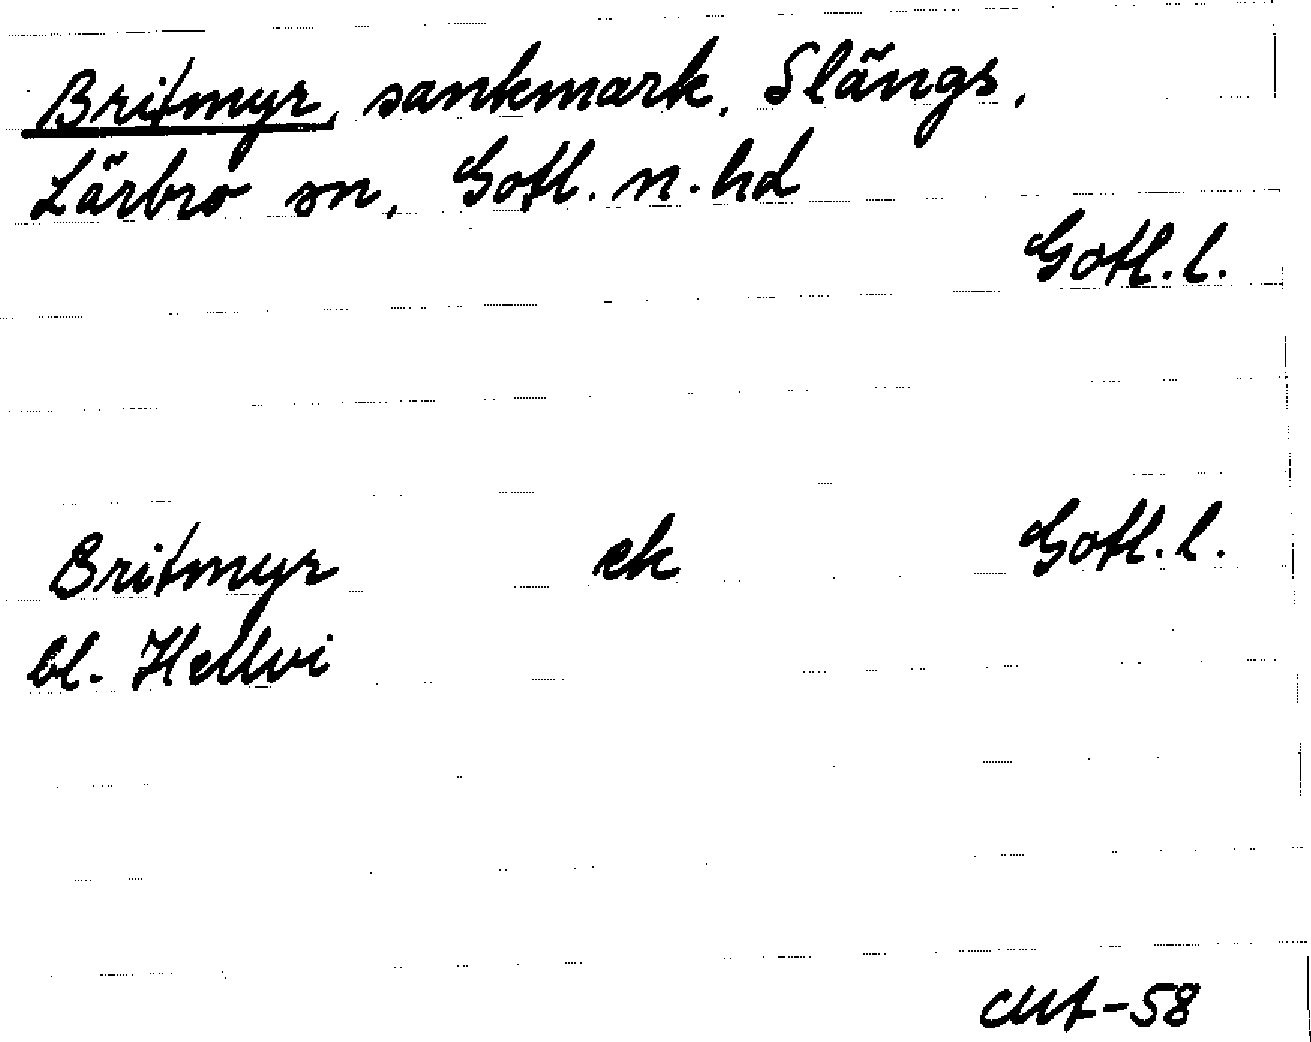 Britmyr, sankmark, Slängs,
Lärbro sn, Gotl. n. hd
Gotl. l.
Britmyr ek Gotl. l.
bl. Hellvi
-58